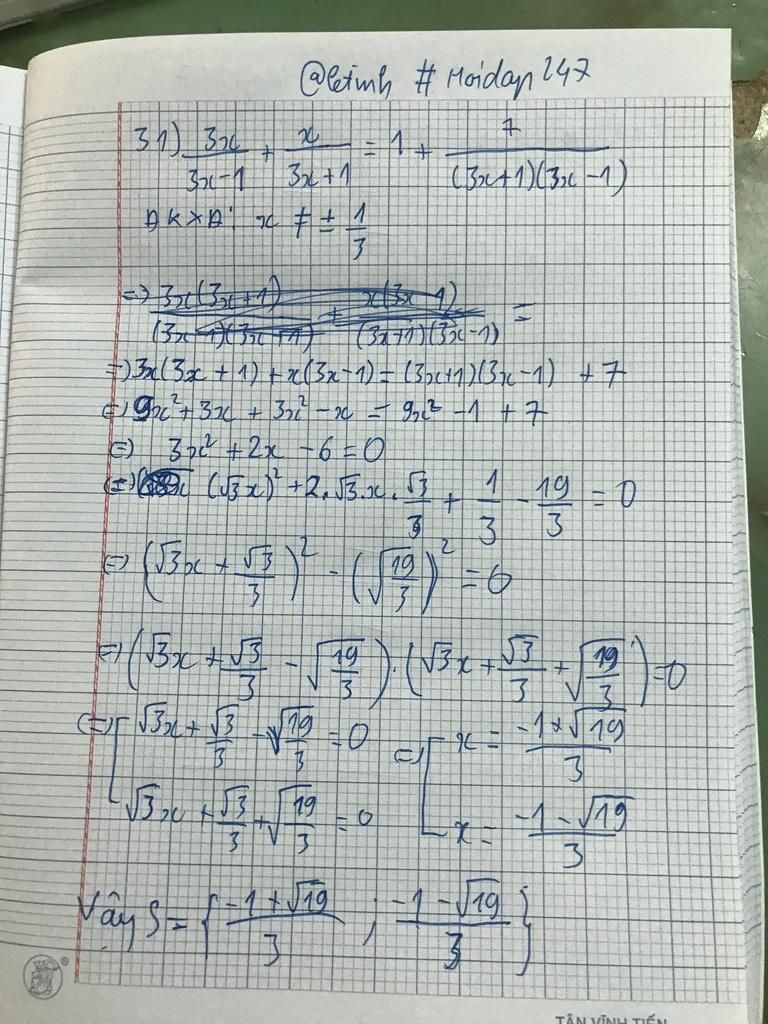 @letinh # Hoidap247
31) \frac{3x}{3x-1} + \frac{x}{3x+1} = 1 + \frac{7}{(3x+1)(3x-1)}
ĐKXĐ: x ≠ ± \frac{1}{3}
=> \frac{3x(3x+1)}{(3x-1)(3x+1)} + \frac{x(3x-1)}{(3x+1)(3x-1)} =
=> 3x(3x+1) + x(3x-1) = (3x+1)(3x-1) + 7
<=> 9x² + 3x + 3x² - x = 9x² - 1 + 7
<=> 3x² + 2x - 6 = 0
<=> (√3x)² + 2.√3.x.\frac{√3}{3} + \frac{1}{3} - \frac{19}{3} = 0
<=> (√3x + \frac{√3}{3})² - (√\frac{19}{3})² = 0
<=> (√3x + \frac{√3}{3} - √\frac{19}{3}).(√3x + \frac{√3}{3} + √\frac{19}{3}) = 0
<=> [ √3x + \frac{√3}{3} - √\frac{19}{3} = 0 <=> [ x = \frac{-1+√19}{3}
√3x + \frac{√3}{3} + √\frac{19}{3} = 0 x = \frac{-1-√19}{3}
Vậy S = { \frac{-1+√19}{3} ; \frac{-1-√19}{3} }
TÂN VĨNH TIẾN